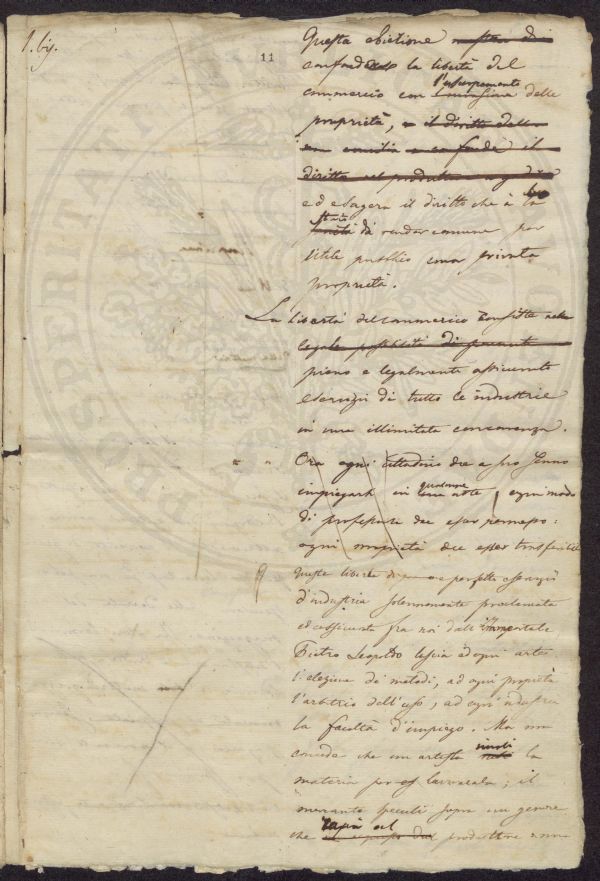 1. bis.
11
Questa obiezione
confonde la libertà del
commercio con l'usurpamento delle
proprietà, e il diritto
diritto
ed esagera il diritto che à lo
stato di render comune per
l'utile pubblico una privata
proprietà.
La libertà del commercio consiste nella
legale possibilità di
pieno e legalmente assicurato
esercizio di tutte le industrie
in una illimitata concorrenza.
Ora ogni cittadino dee a suo senno
impiegarsi in qualunque arte, ogni modo
di professare dee esser permesso:
ogni proprietà dee esser transferibile
questa libertà perfetta
d'industria solennemente proclamata
ed assicurata fra noi dall'immortale
Pietro Leopoldo lascia ad ogni arte
l'elezione de' metodi, ad ogni proprietà
l'arbitrio dell'uso, ad ogni industria
la facoltà d'impiego. Ma non
concede che un artista involi la
materia per lavorarla; il
mercante speculi sopra un genere
che rapia al produttore